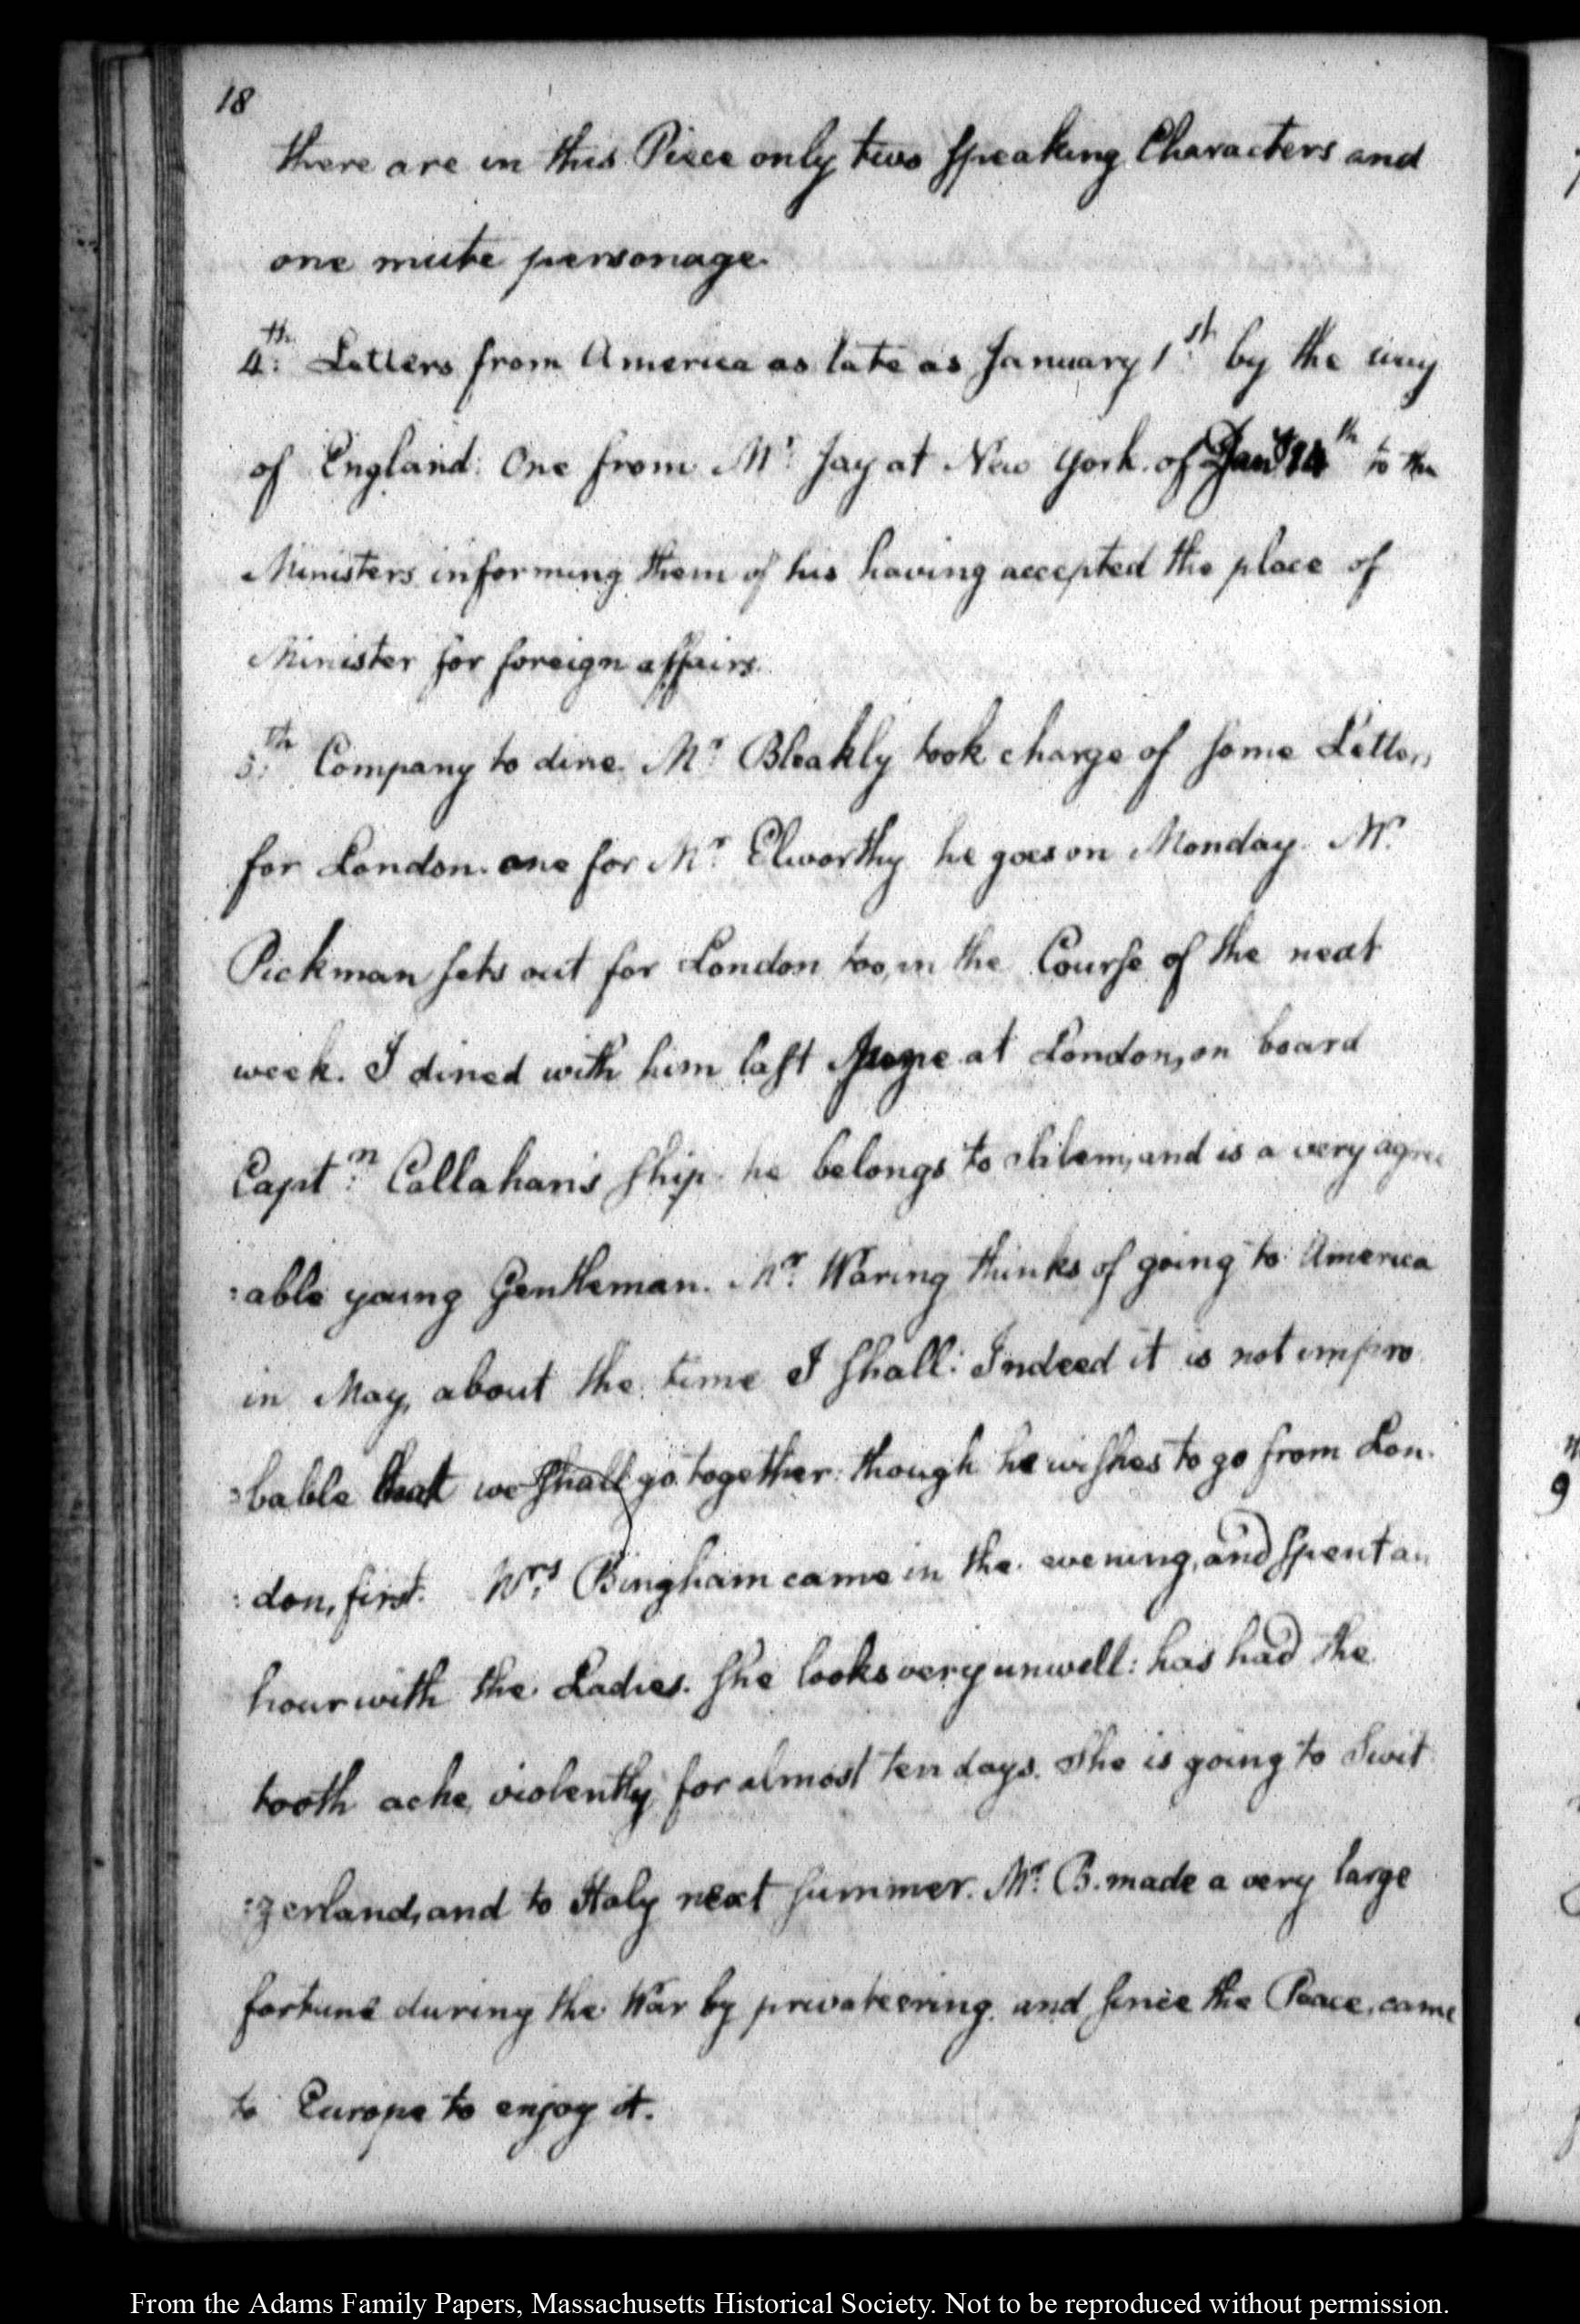 18
there are in this Piece only two speaking Characters and
one mute personage.
4.th Letters from America as late as January 1.st by the way
of England: One from Mr. Jay at New York. of 14th to the
Ministers informing them of his having accepted the place of
Minister for foreign affairs.
5.th Company to dine. Mr. Bleakly took charge of some Letters
for London. one for Mr. Elworthy he goes on Monday. Mr.
Pickman sets out for London too, in the Course of the next
week. I dined with him last at London, on board
Captn. Callahan's ship. he belongs to and is a very agree
:able young Gentleman. Mr. Waring thinks of going to America
in May, about the time I shall: Indeed it is not impro
:bable that we shall go together: though he wishes to go from Lon:
:don, first. Mrs. Bingham came in the evening, and spent an
hour with the Ladies. she looks very unwell: has had the
tooth ache, violently for almost ten days. She is going to Swit
:zerland, and to Italy next summer. Mr. B. made a very large
fortune during the War by privateering. and since the Peace, came
to Europe to enjoy it.
From the Adams Family Papers, Massachusetts Historical Society. Not to be reproduced without permission.